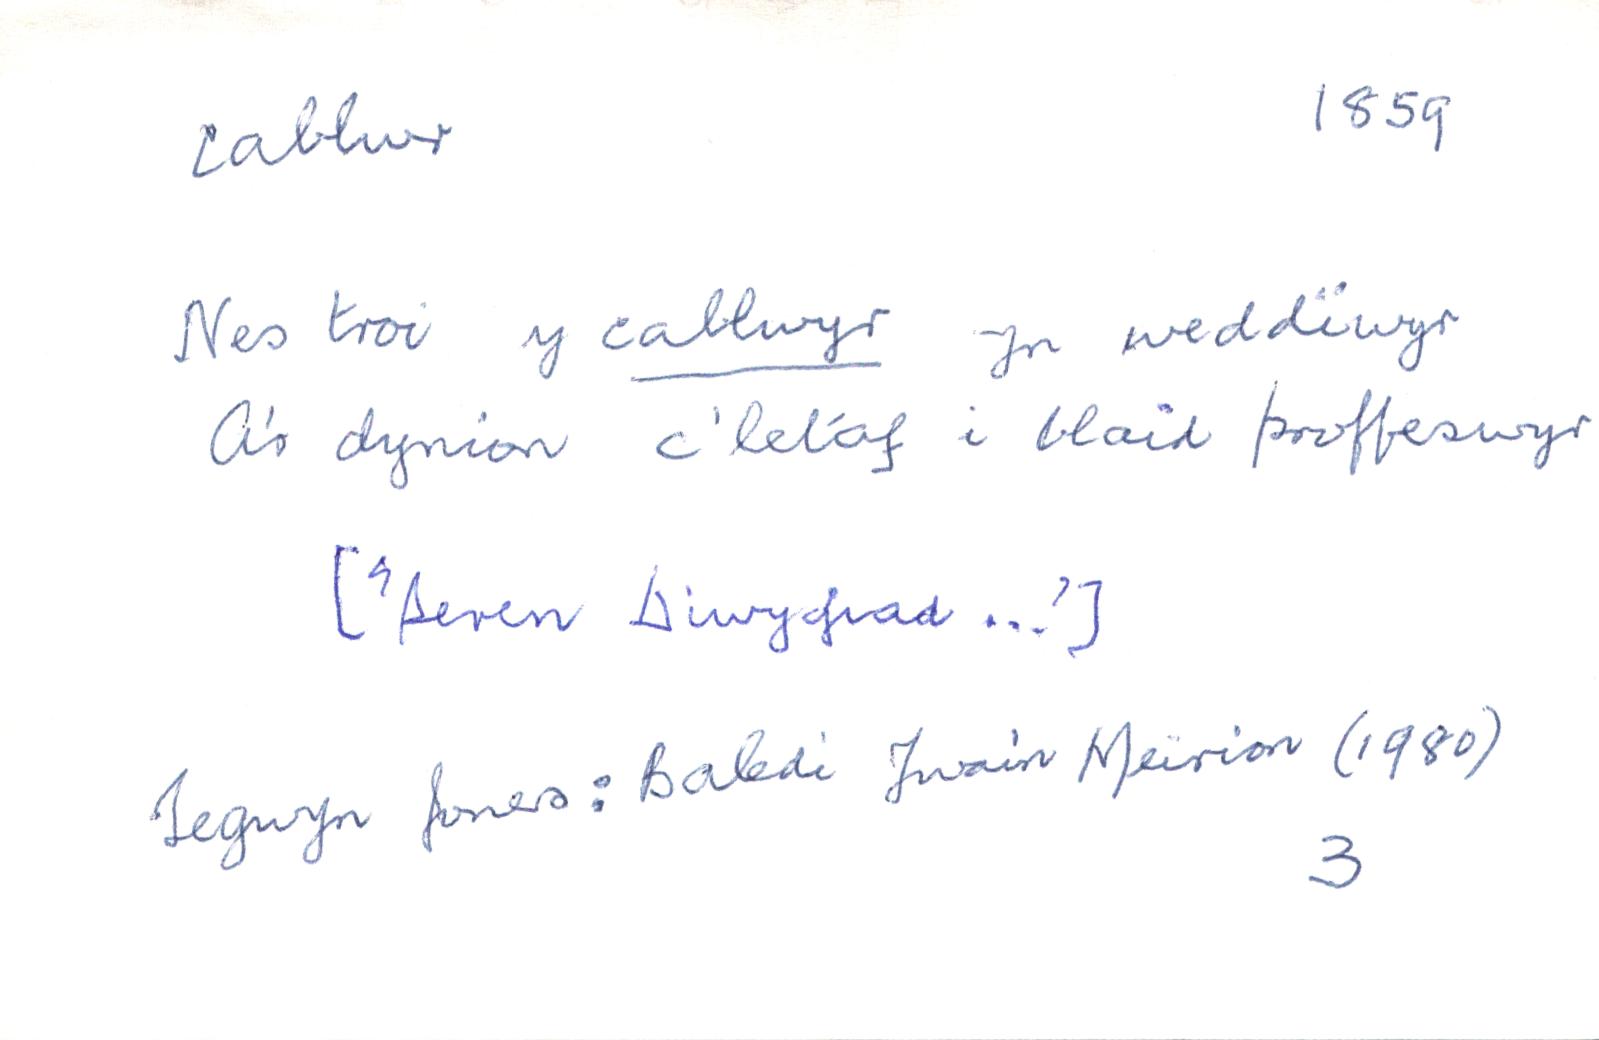 cablwr 1859
Nes troi y cablwyr yn weddïwyr
A'r dynion c'letaf i blaid proffeswyr
['Seren Diwygiad ...']
Tegwyn Jones: Baledi Ywain Meirion (1980)
3